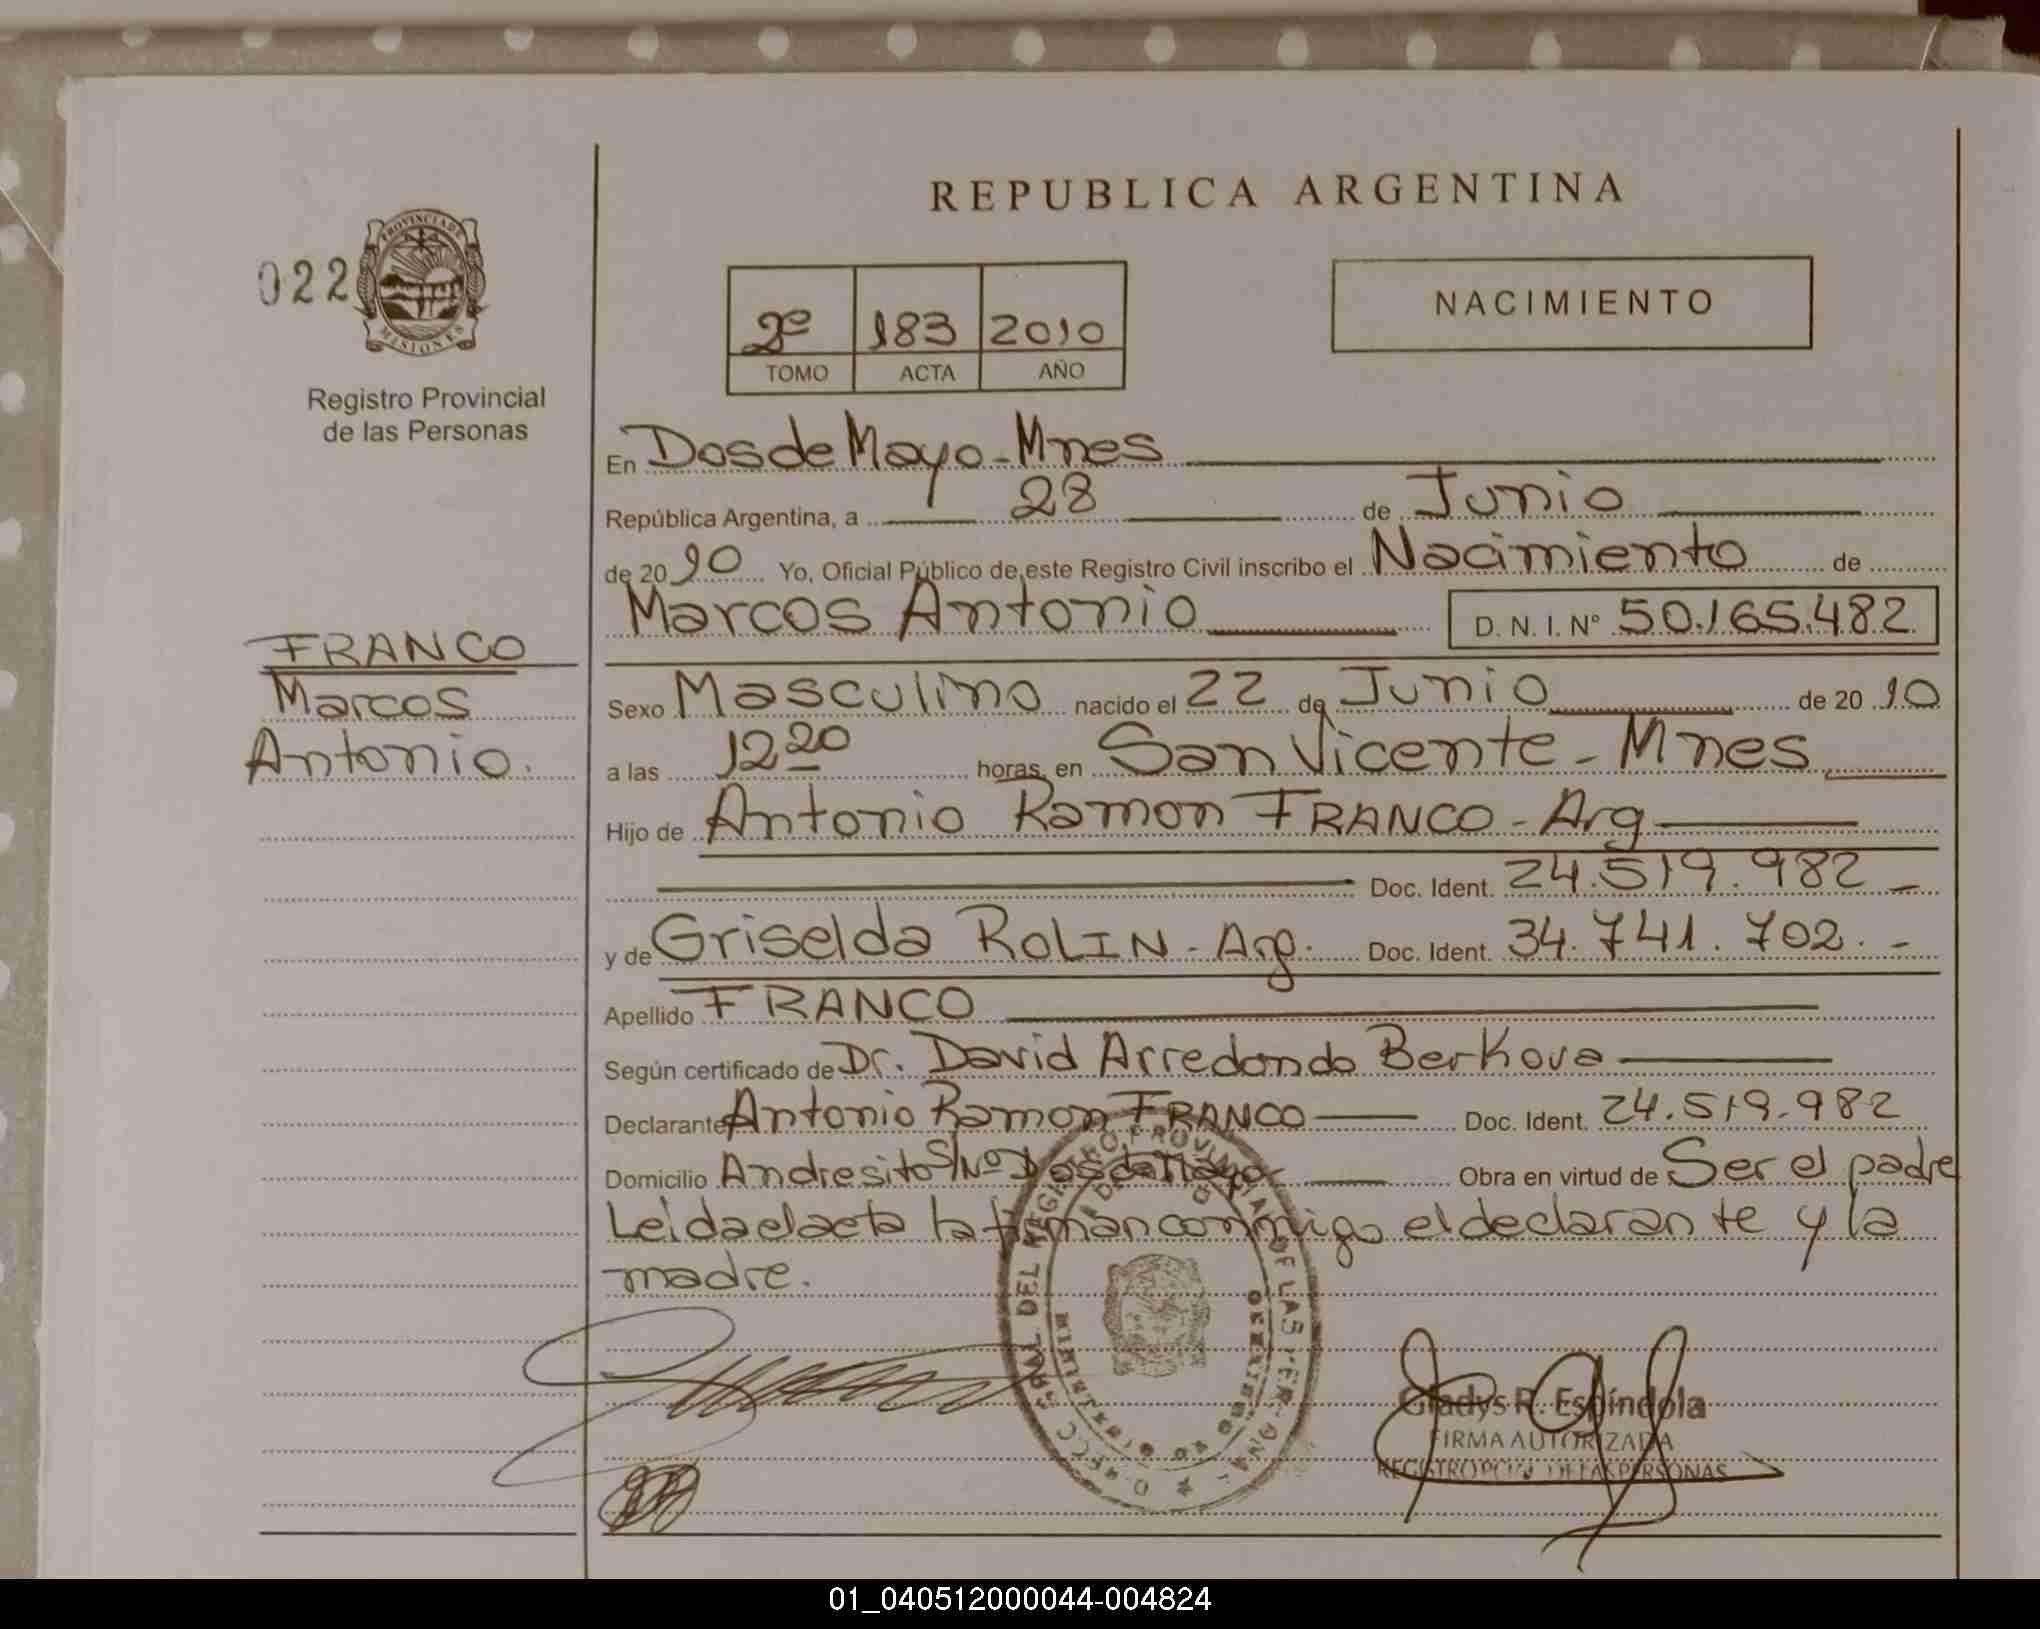 REPUBLICA ARGENTINA
022
PROVINCIA DE
MISIONES
Registro Provincial
de las Personas
2º 183 2010
TOMO ACTA AÑO
NACIMIENTO
En Dos de Mayo - Mnes
República Argentina, a 28 de Junio
de 2010 Yo, Oficial Público de este Registro Civil inscribo el Nacimiento de
Marcos Antonio D. N. I. Nº 50.165.482
FRANCO
Marcos
Antonio.
Sexo Masculino nacido el 22 de Junio de 2010
a las 12 20 horas, en San Vicente - Mnes
Hijo de Antonio Ramon FRANCO - Arg
Doc. Ident. 24.519.982 -
y de Griselda ROLIN - Arg. Doc. Ident. 34.741.702. -
Apellido FRANCO
Según certificado de Dr. David Arredondo Berkova
Declarante Antonio Ramon FRANCO Doc. Ident. 24.519.982
Domicilio Andresito S/Nº Dos de Mayo Obra en virtud de Ser el padre
Leida el acta la firman conmigo el declarante y la
madre.
Gladys R. Espíndola
FIRMA AUTORIZADA
REGISTRO PCIAL. DE LAS PERSONAS
01_040512000044-004824